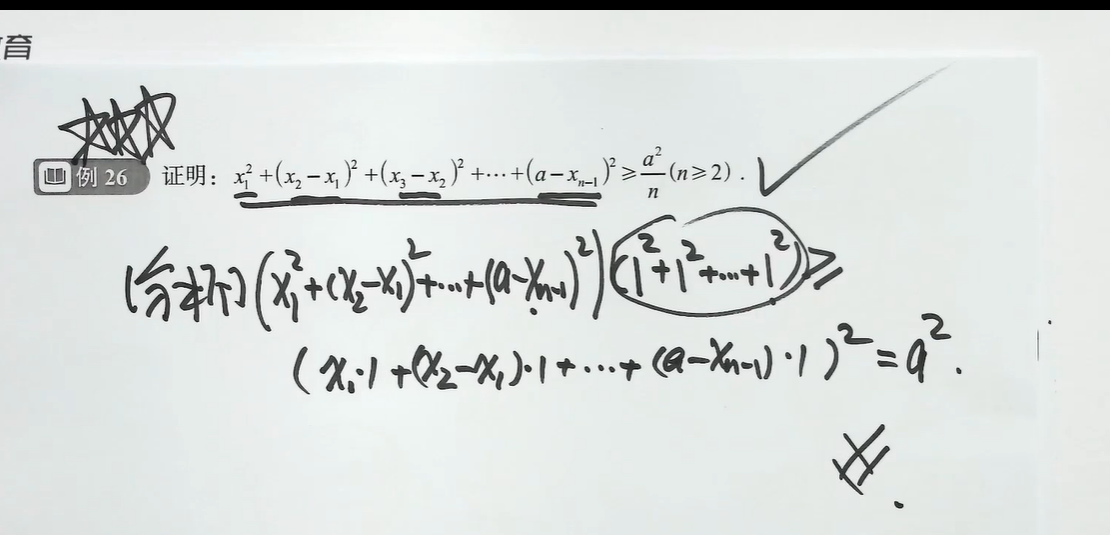 育
例 26 证明：x₁² + (x₂ − x₁)² + (x₃ − x₂)² + ⋯ + (a − xₙ₋₁)² ≥ a²/n (n ≥ 2).
[分析] (x₁² + (x₂ − x₁)² + ⋯ + (a − xₙ₋₁)²)(1² + 1² + ⋯ + 1²) ≥
(x₁·1 + (x₂ − x₁)·1 + ⋯ + (a − xₙ₋₁)·1)² = a².
#.